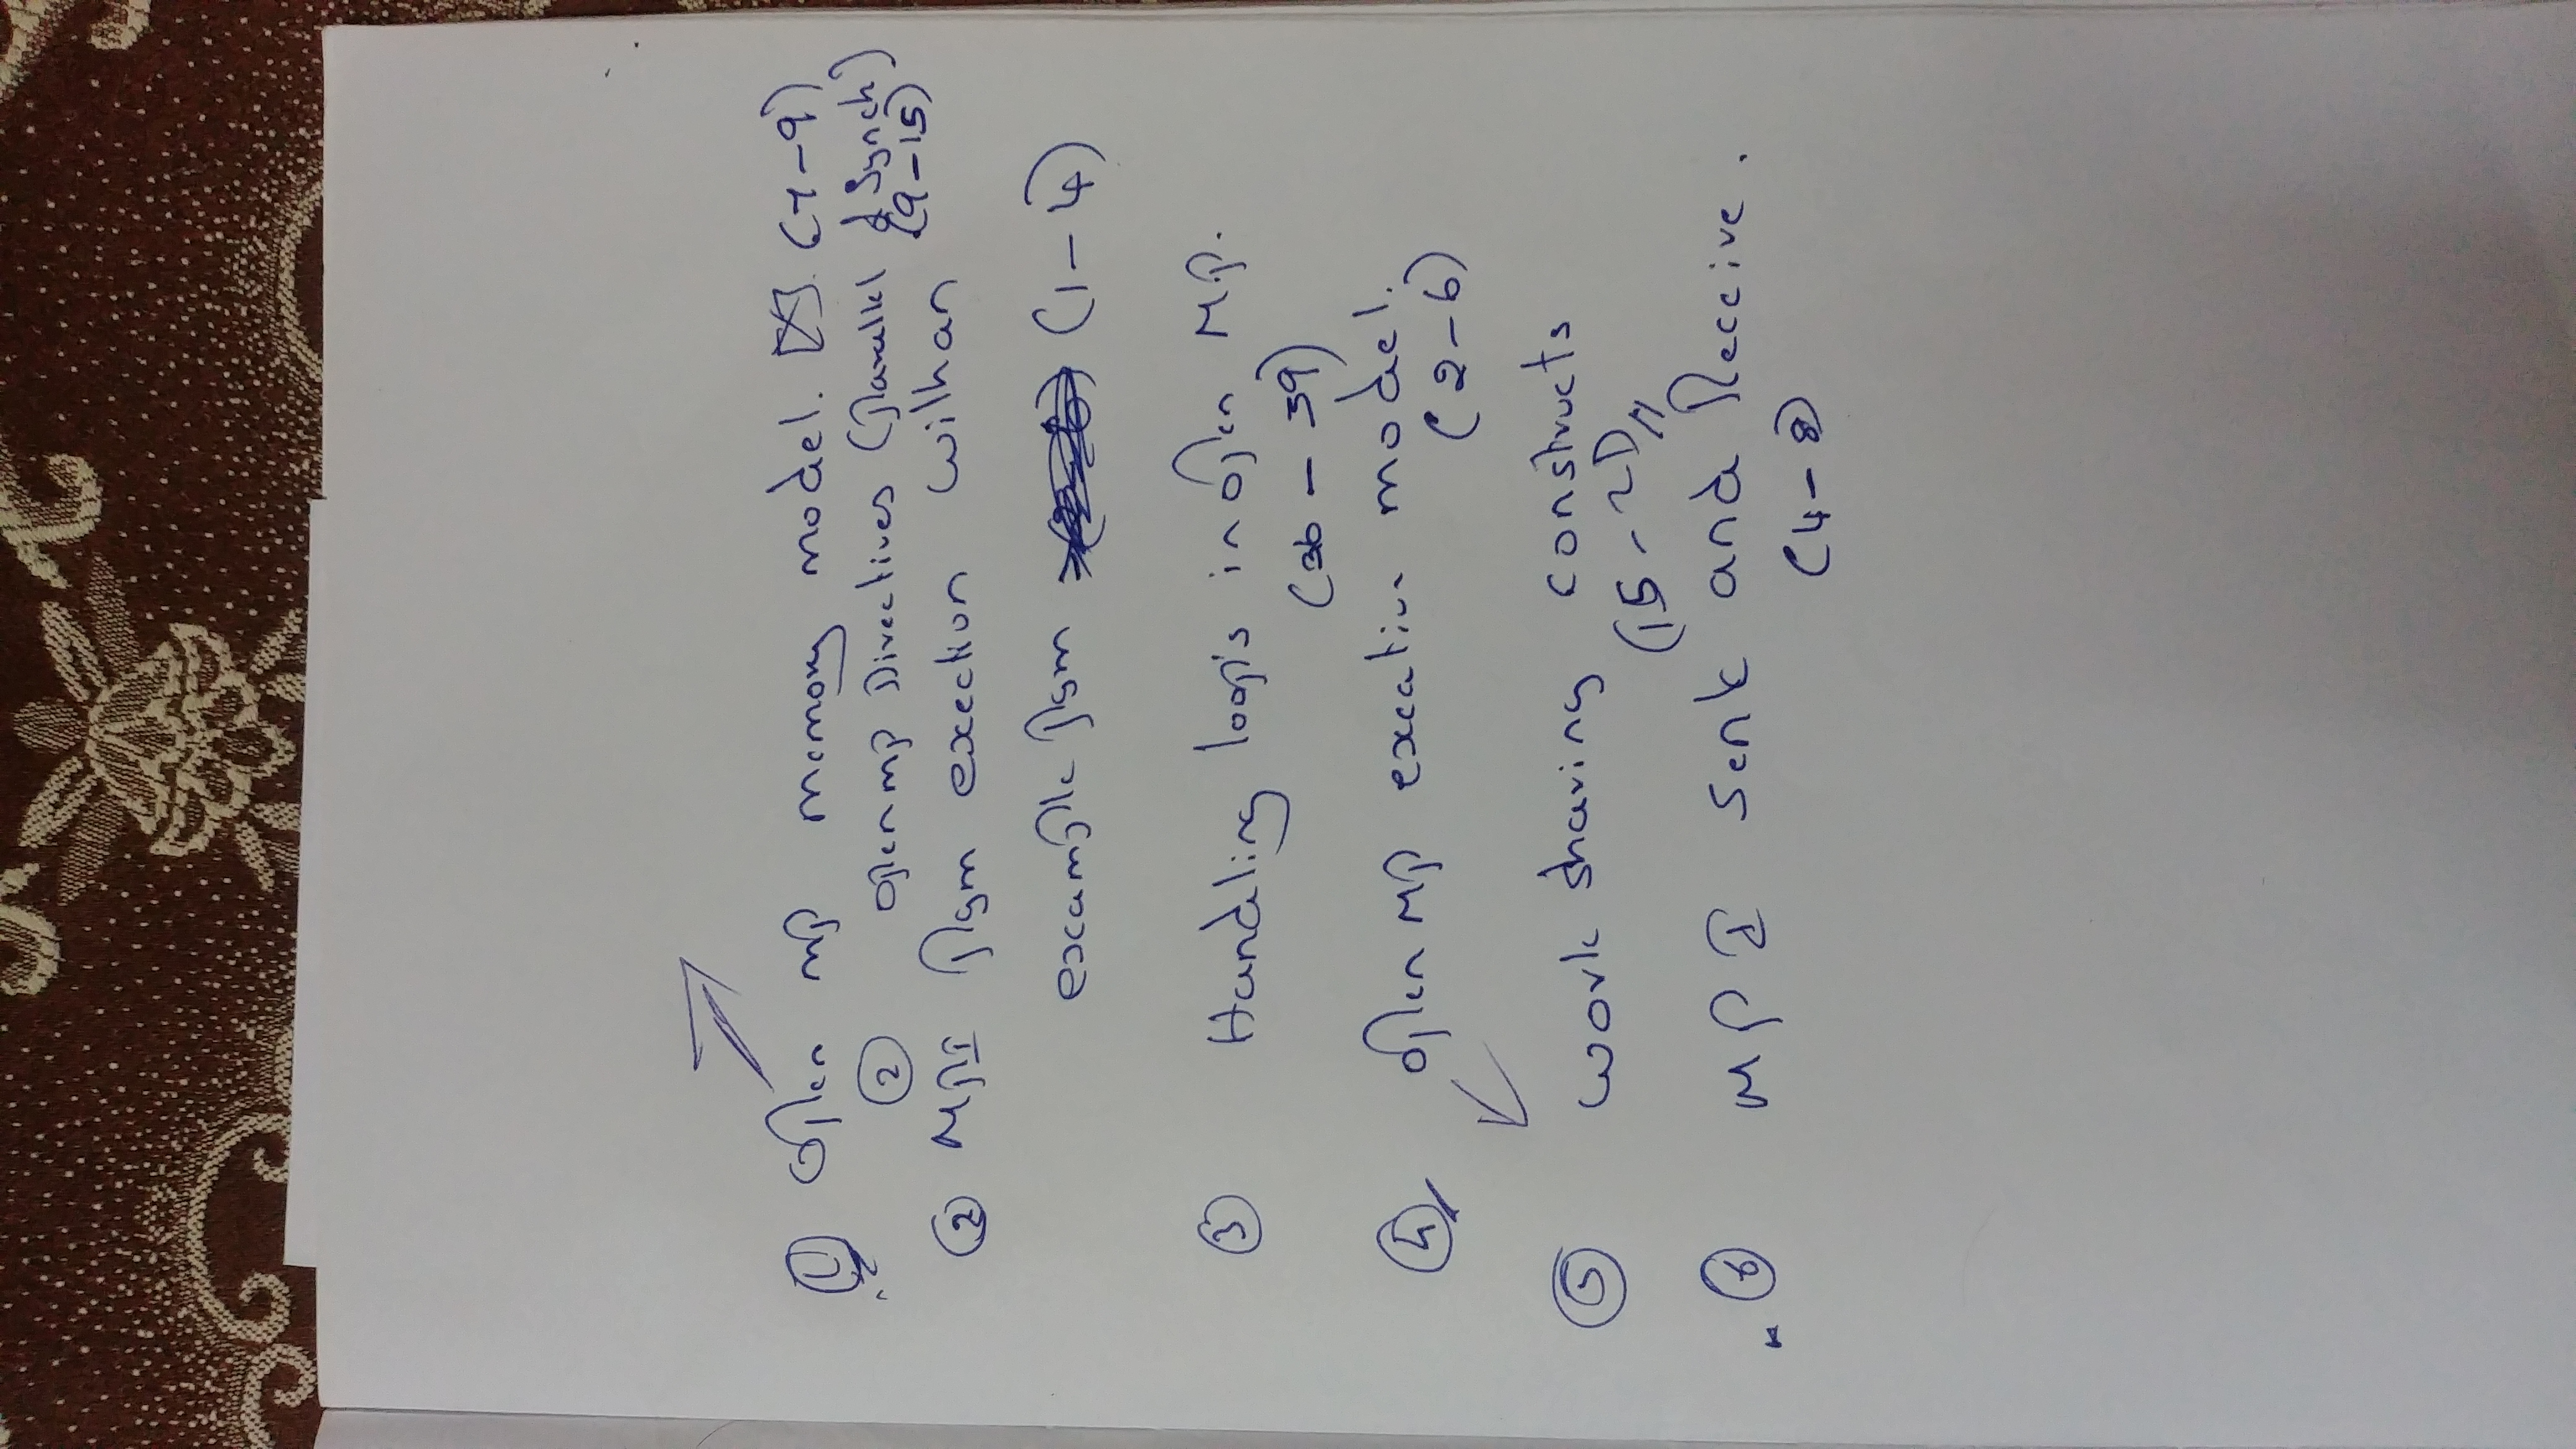 ① Open mp memory model. (7-9)
② Openmp Directives (Parallel & Synch)
(9-15)
② MPI Pgm exection with an
example pgm (1-4)
③ Handling loop's in open M.P.
(36 - 39)
④ Open MP execution model.
(2-6)
⑤ Work sharing constructs
(15-21)
⑥ MPI Send and Receive.
(4-8)